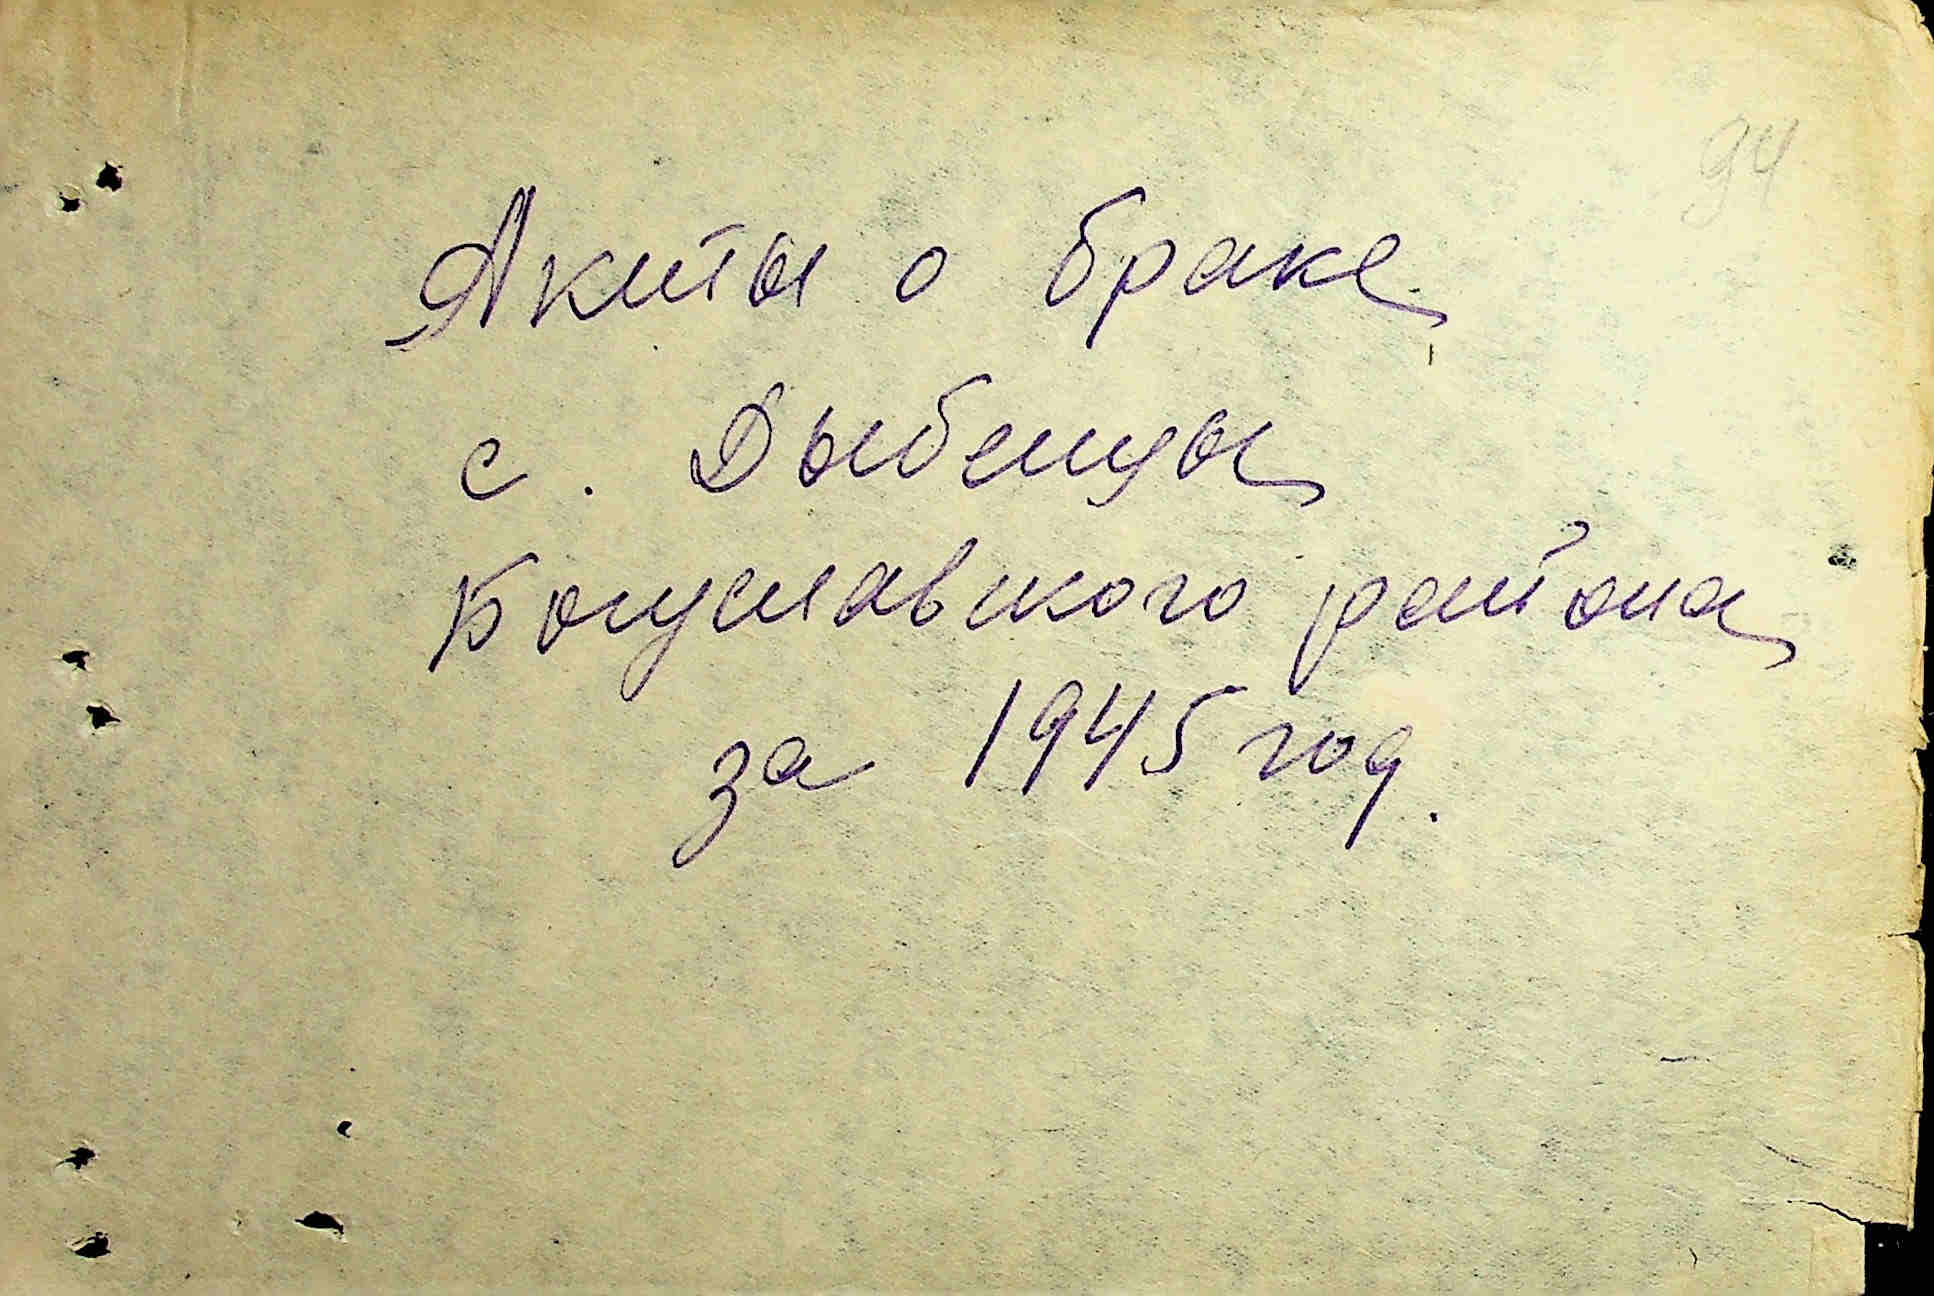 94
Акты о браке
с. Дыбенцы
Богуславского района
за 1945 год.